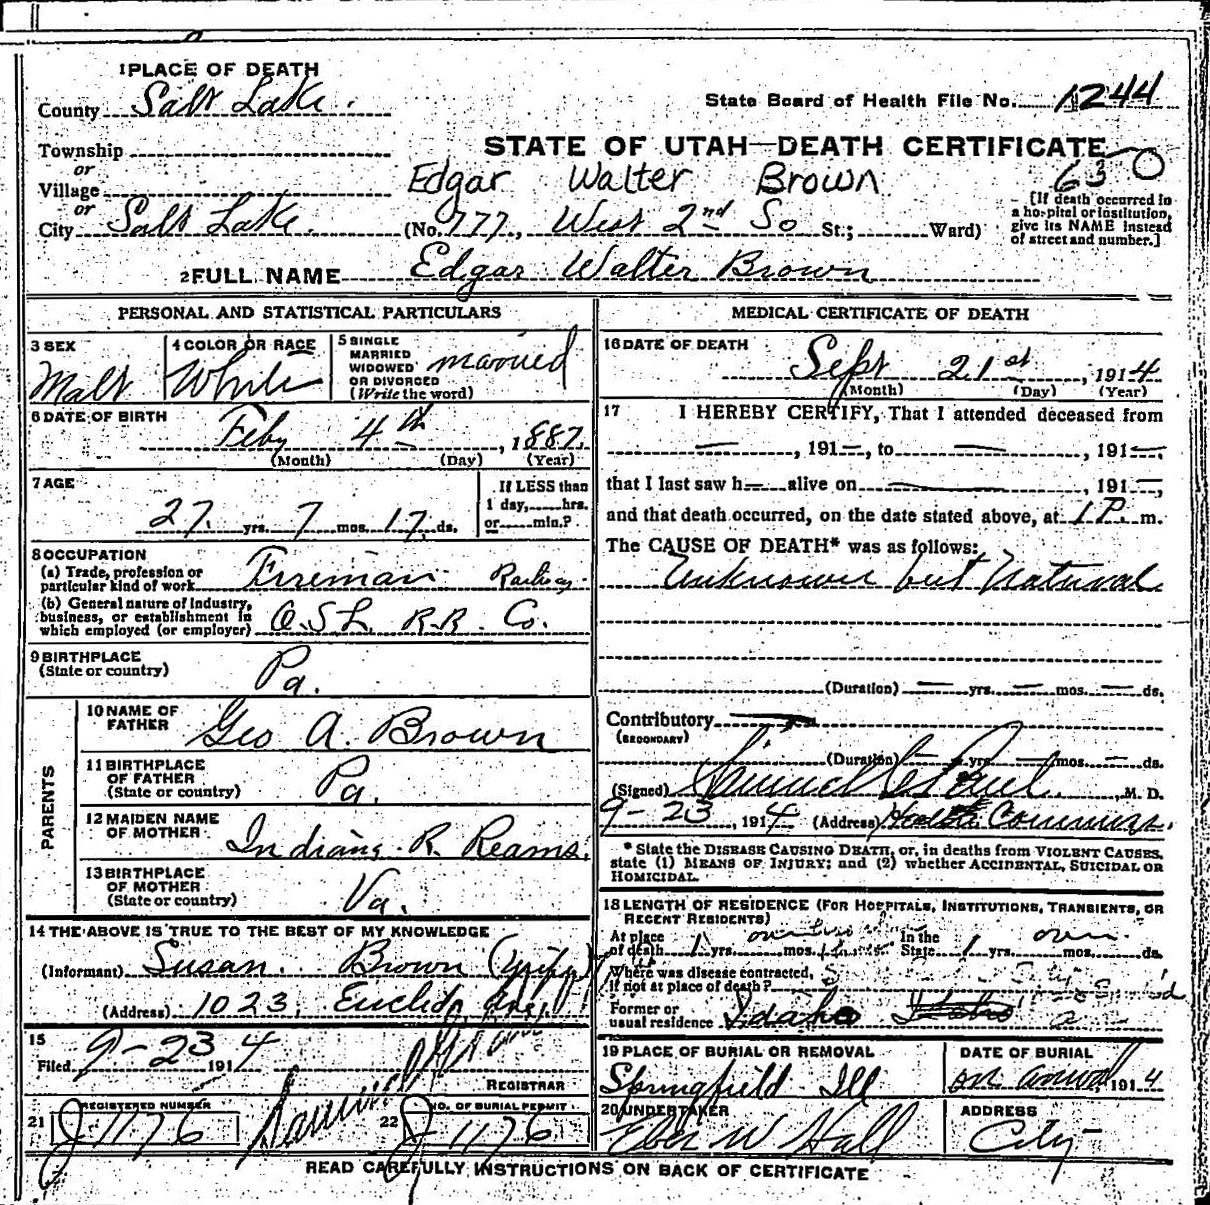 1 PLACE OF DEATH
County Salt Lake.
State Board of Health File No. 1244
STATE OF UTAH—DEATH CERTIFICATE
Township
or
Village
or
Edgar Walter Brown
630
City Salt Lake. (No. 777, West 2nd So St.; Ward)
[If death occurred in
a hospital or institution,
give its NAME instead
of street and number.]
2 FULL NAME Edgar Walter Brown
PERSONAL AND STATISTICAL PARTICULARS
3 SEX
Male
4 COLOR OR RACE
White
5 SINGLE
MARRIED
WIDOWED
OR DIVORCED
(Write the word)
married
6 DATE OF BIRTH
Feby 4th, 1887.
(Month) (Day) (Year)
7 AGE
27. yrs. 7 mos. 17. ds.
If LESS than
1 day, hrs.
or min.?
8 OCCUPATION
(a) Trade, profession or
particular kind of work Fireman Railway.
(b) General nature of Industry,
business, or establishment in
which employed (or employer) O.S.L. R.R. Co.
9 BIRTHPLACE
(State or country) Pa.
PARENTS
10 NAME OF
FATHER Geo A. Brown
11 BIRTHPLACE
OF FATHER
(State or country) Pa.
12 MAIDEN NAME
OF MOTHER Indiana R. Reams.
13 BIRTHPLACE
OF MOTHER
(State or country) Va.
14 THE ABOVE IS TRUE TO THE BEST OF MY KNOWLEDGE
(Informant) Susan Brown (wife)
(Address) 1023, Euclid Ave.
15
Filed 9-23 1914
REGISTRAR
21 REGISTERED NUMBER
J 1176
22 NO. OF BURIAL PERMIT
J 1176
MEDICAL CERTIFICATE OF DEATH
16 DATE OF DEATH
Sept 21st, 1914
(Month) (Day) (Year)
17 I HEREBY CERTIFY, That I attended deceased from
—, 191—, to —, 191—,
that I last saw h— alive on —, 191—,
and that death occurred, on the date stated above, at 1 P. m.
The CAUSE OF DEATH* was as follows:
Unknown but Natural
(Duration) — yrs. — mos. — ds.
Contributory
(SECONDARY)
(Duration) — yrs. — mos. — ds.
(Signed) Samuel G Paul, M. D.
9-23, 1914 (Address) Health Commr.
* State the DISEASE CAUSING DEATH, or, in deaths from VIOLENT CAUSES,
state (1) MEANS OF INJURY; and (2) whether ACCIDENTAL, SUICIDAL OR
HOMICIDAL.
18 LENGTH OF RESIDENCE (FOR HOSPITALS, INSTITUTIONS, TRANSIENTS, OR
RECENT RESIDENTS)
At place
of death 1 yrs. mos. In the
State 1 yrs. over mos. ds.
Where was disease contracted,
if not at place of death?
Former or
usual residence Idaho Idaho
19 PLACE OF BURIAL OR REMOVAL
Springfield Ill
DATE OF BURIAL
on arrival 1914
20 UNDERTAKER
Eber W Hall
ADDRESS
City
READ CAREFULLY INSTRUCTIONS ON BACK OF CERTIFICATE